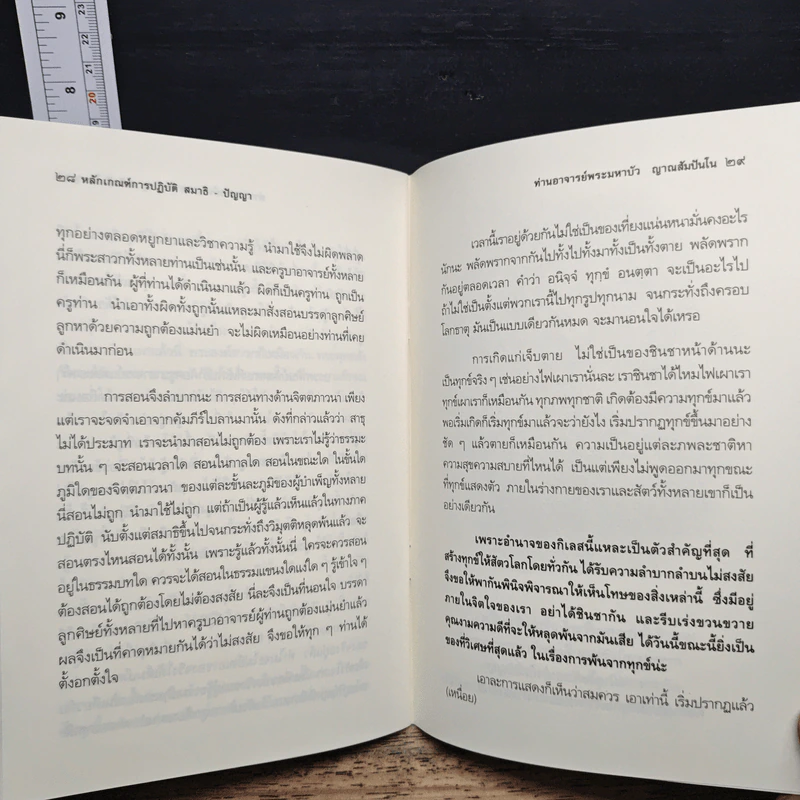 9
8
23
22
21
20
๒๘ หลักเกณฑ์การปฏิบัติ สมาธิ - ปัญญา
ทุกอย่างตลอดหยูกยาและวิชาความรู้ นำมาใช้จึงไม่ผิดพลาด
นี่ก็พระสาวกทั้งหลายท่านเป็นเช่นนั้น และครูบาอาจารย์ทั้งหลาย
ก็เหมือนกัน ผู้ที่ท่านได้ดำเนินมาแล้ว ผิดก็เป็นครูท่าน ถูกเป็น
ครูท่าน นำเอาทั้งผิดทั้งถูกนั้นแหละมาสั่งสอนบรรดาลูกศิษย์
ลูกหาด้วยความถูกต้องแม่นยำ จะไม่ผิดเหมือนอย่างท่านที่เคย
ดำเนินมาก่อน
การสอนจึงลำบากนะ การสอนทางด้านจิตตภาวนา เพียง
แต่เราจะจดจำเอาจากคัมภีร์ใบลานมานั้น ดังที่กล่าวแล้วว่า สาธุ
ไม่ได้ประมาท เราจะนำมาสอนไม่ถูกต้อง เพราะเราไม่รู้ว่าธรรมะ
บทนั้น ๆ จะสอนเวลาใด สอนในกาลใด สอนในขณะใด ในขั้นใด
ภูมิใดของจิตตภาวนา ของแต่ละขั้นละภูมิของผู้บำเพ็ญทั้งหลาย
นี่สอนไม่ถูก นำมาใช้ไม่ถูก แต่ถ้าเป็นผู้รู้แล้วเห็นแล้วในทางภาค
ปฏิบัติ นับตั้งแต่สมาธิขึ้นไปจนกระทั่งถึงวิมุตติหลุดพ้นแล้ว จะ
สอนตรงไหนสอนได้ทั้งนั้น เพราะรู้แล้วทั้งนั้นนี่ ใครจะควรสอน
อยู่ในธรรมบทใด ควรจะได้สอนในธรรมแขนงใดแง่ใด ๆ รู้เข้าใจ ๆ
ต้องสอนได้ถูกต้องโดยไม่ต้องสงสัย นี่ละจึงเป็นที่นอนใจ บรรดา
ลูกศิษย์ทั้งหลายที่ไปหาครูบาอาจารย์ผู้ท่านถูกต้องแม่นยำแล้ว
ผลจึงเป็นที่คาดหมายกันได้ว่าไม่สงสัย จึงขอให้ทุก ๆ ท่านได้
ตั้งอกตั้งใจ
ท่านอาจารย์พระมหาบัว ญาณสัมปันโน ๒๙
เวลานี้เราอยู่ด้วยกันไม่ใช่เป็นของเที่ยงแน่นหนามั่นคงอะไร
นักนะ พลัดพรากจากกันไปทั้งไปทั้งมาทั้งเป็นทั้งตาย พลัดพราก
กันอยู่ตลอดเวลา คำว่า อนิจฺจํ ทุกฺขํ อนตฺตา จะเป็นอะไรไป
ถ้าไม่ใช่เป็นตั้งแต่พวกเรานี้ไปทุกรูปทุกนาม จนกระทั่งถึงครอบ
โลกธาตุ มันเป็นแบบเดียวกันหมด จะมานอนใจได้เหรอ
การเกิดแก่เจ็บตาย ไม่ใช่เป็นของชินชาหน้าด้านนะ
เป็นทุกข์จริง ๆ เช่นอย่างไฟเผาเรานั่นละ เราชินชาได้ไหมไฟเผาเรา
ทุกข์เผาเราก็เหมือนกัน ทุกภพทุกชาติ เกิดต้องมีความทุกข์มาแล้ว
พอเริ่มเกิดก็เริ่มทุกข์มาแล้วจะว่ายังไง เริ่มปรากฏทุกข์ขึ้นมาอย่าง
ชัด ๆ แล้วตายก็เหมือนกัน ความเป็นอยู่แต่ละภพละชาติหา
ความสุขความสบายที่ไหนได้ เป็นแต่เพียงไม่พูดออกมาทุกขณะ
ที่ทุกข์แสดงตัว ภายในร่างกายของเราและสัตว์ทั้งหลายเขาก็เป็น
อย่างเดียวกัน
เพราะอำนาจของกิเลสนี้แหละเป็นตัวสำคัญที่สุด ที่
สร้างทุกข์ให้สัตว์โลกโดยทั่วกัน ได้รับความลำบากลำบนไม่สงสัย
จึงขอให้พากันพินิจพิจารณาให้เห็นโทษของสิ่งเหล่านี้ ซึ่งมีอยู่
ภายในจิตใจของเรา อย่าได้ชินชากัน และรีบเร่งขวนขวาย
คุณงามความดีที่จะให้หลุดพ้นจากมันเสีย ได้วันนี้ขณะนี้ยิ่งเป็น
ของที่วิเศษที่สุดแล้ว ในเรื่องการพ้นจากทุกข์น่ะ
เอาละการแสดงก็เห็นว่าสมควร เอาเท่านี้ เริ่มปรากฏแล้ว
(เหนื่อย)